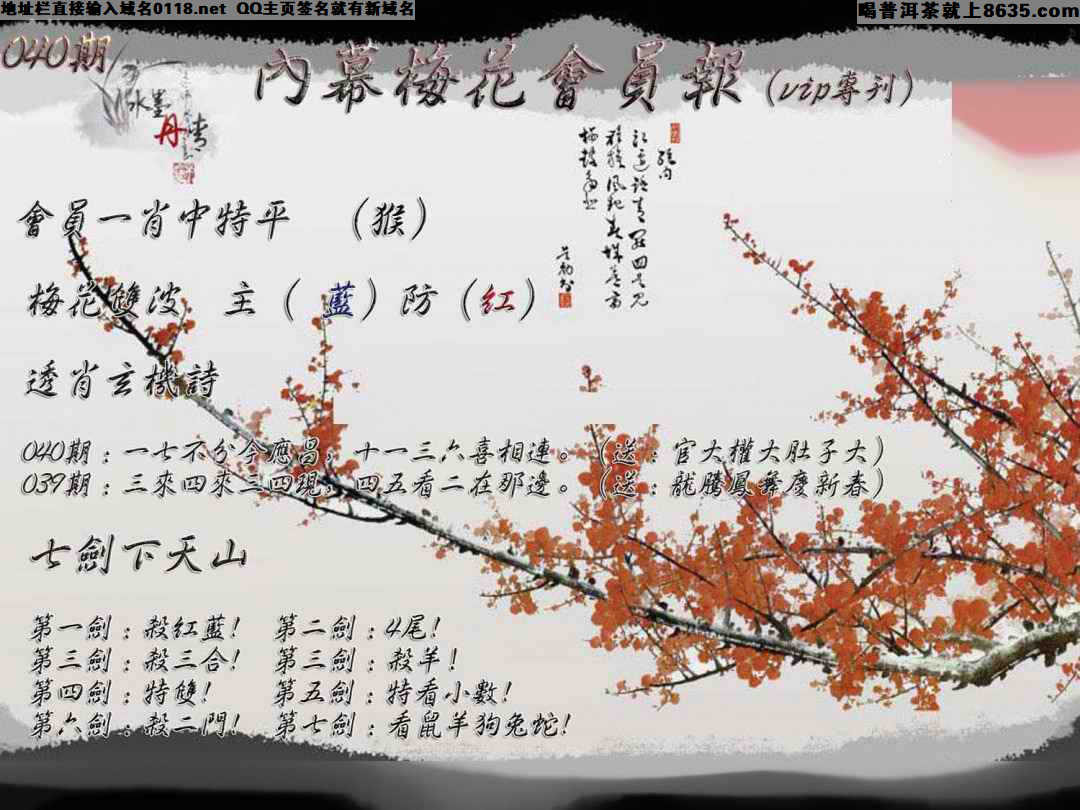 地址栏直接输入域名0118.net QQ主页签名就有新域名
喝普洱茶就上8635.com
040期
水墨丹青
內幕梅花會員報(vip專刊)
會員一肖中特平 (猴)
梅花雙波 主(藍)防(紅)
透肖玄機詩
040期:一七不分今應昌,十一三六喜相連。(送:官大權大肚子大)
039期:三來四來三四現,四五看二在那邊。(送:龍騰鳳舞慶新春)
七劍下天山
第一劍:殺紅藍! 第二劍:4尾!
第三劍:殺三合! 第三劍:殺羊!
第四劍:特雙! 第五劍:特看小數!
第六劍:殺二門! 第七劍:看鼠羊狗兔蛇!